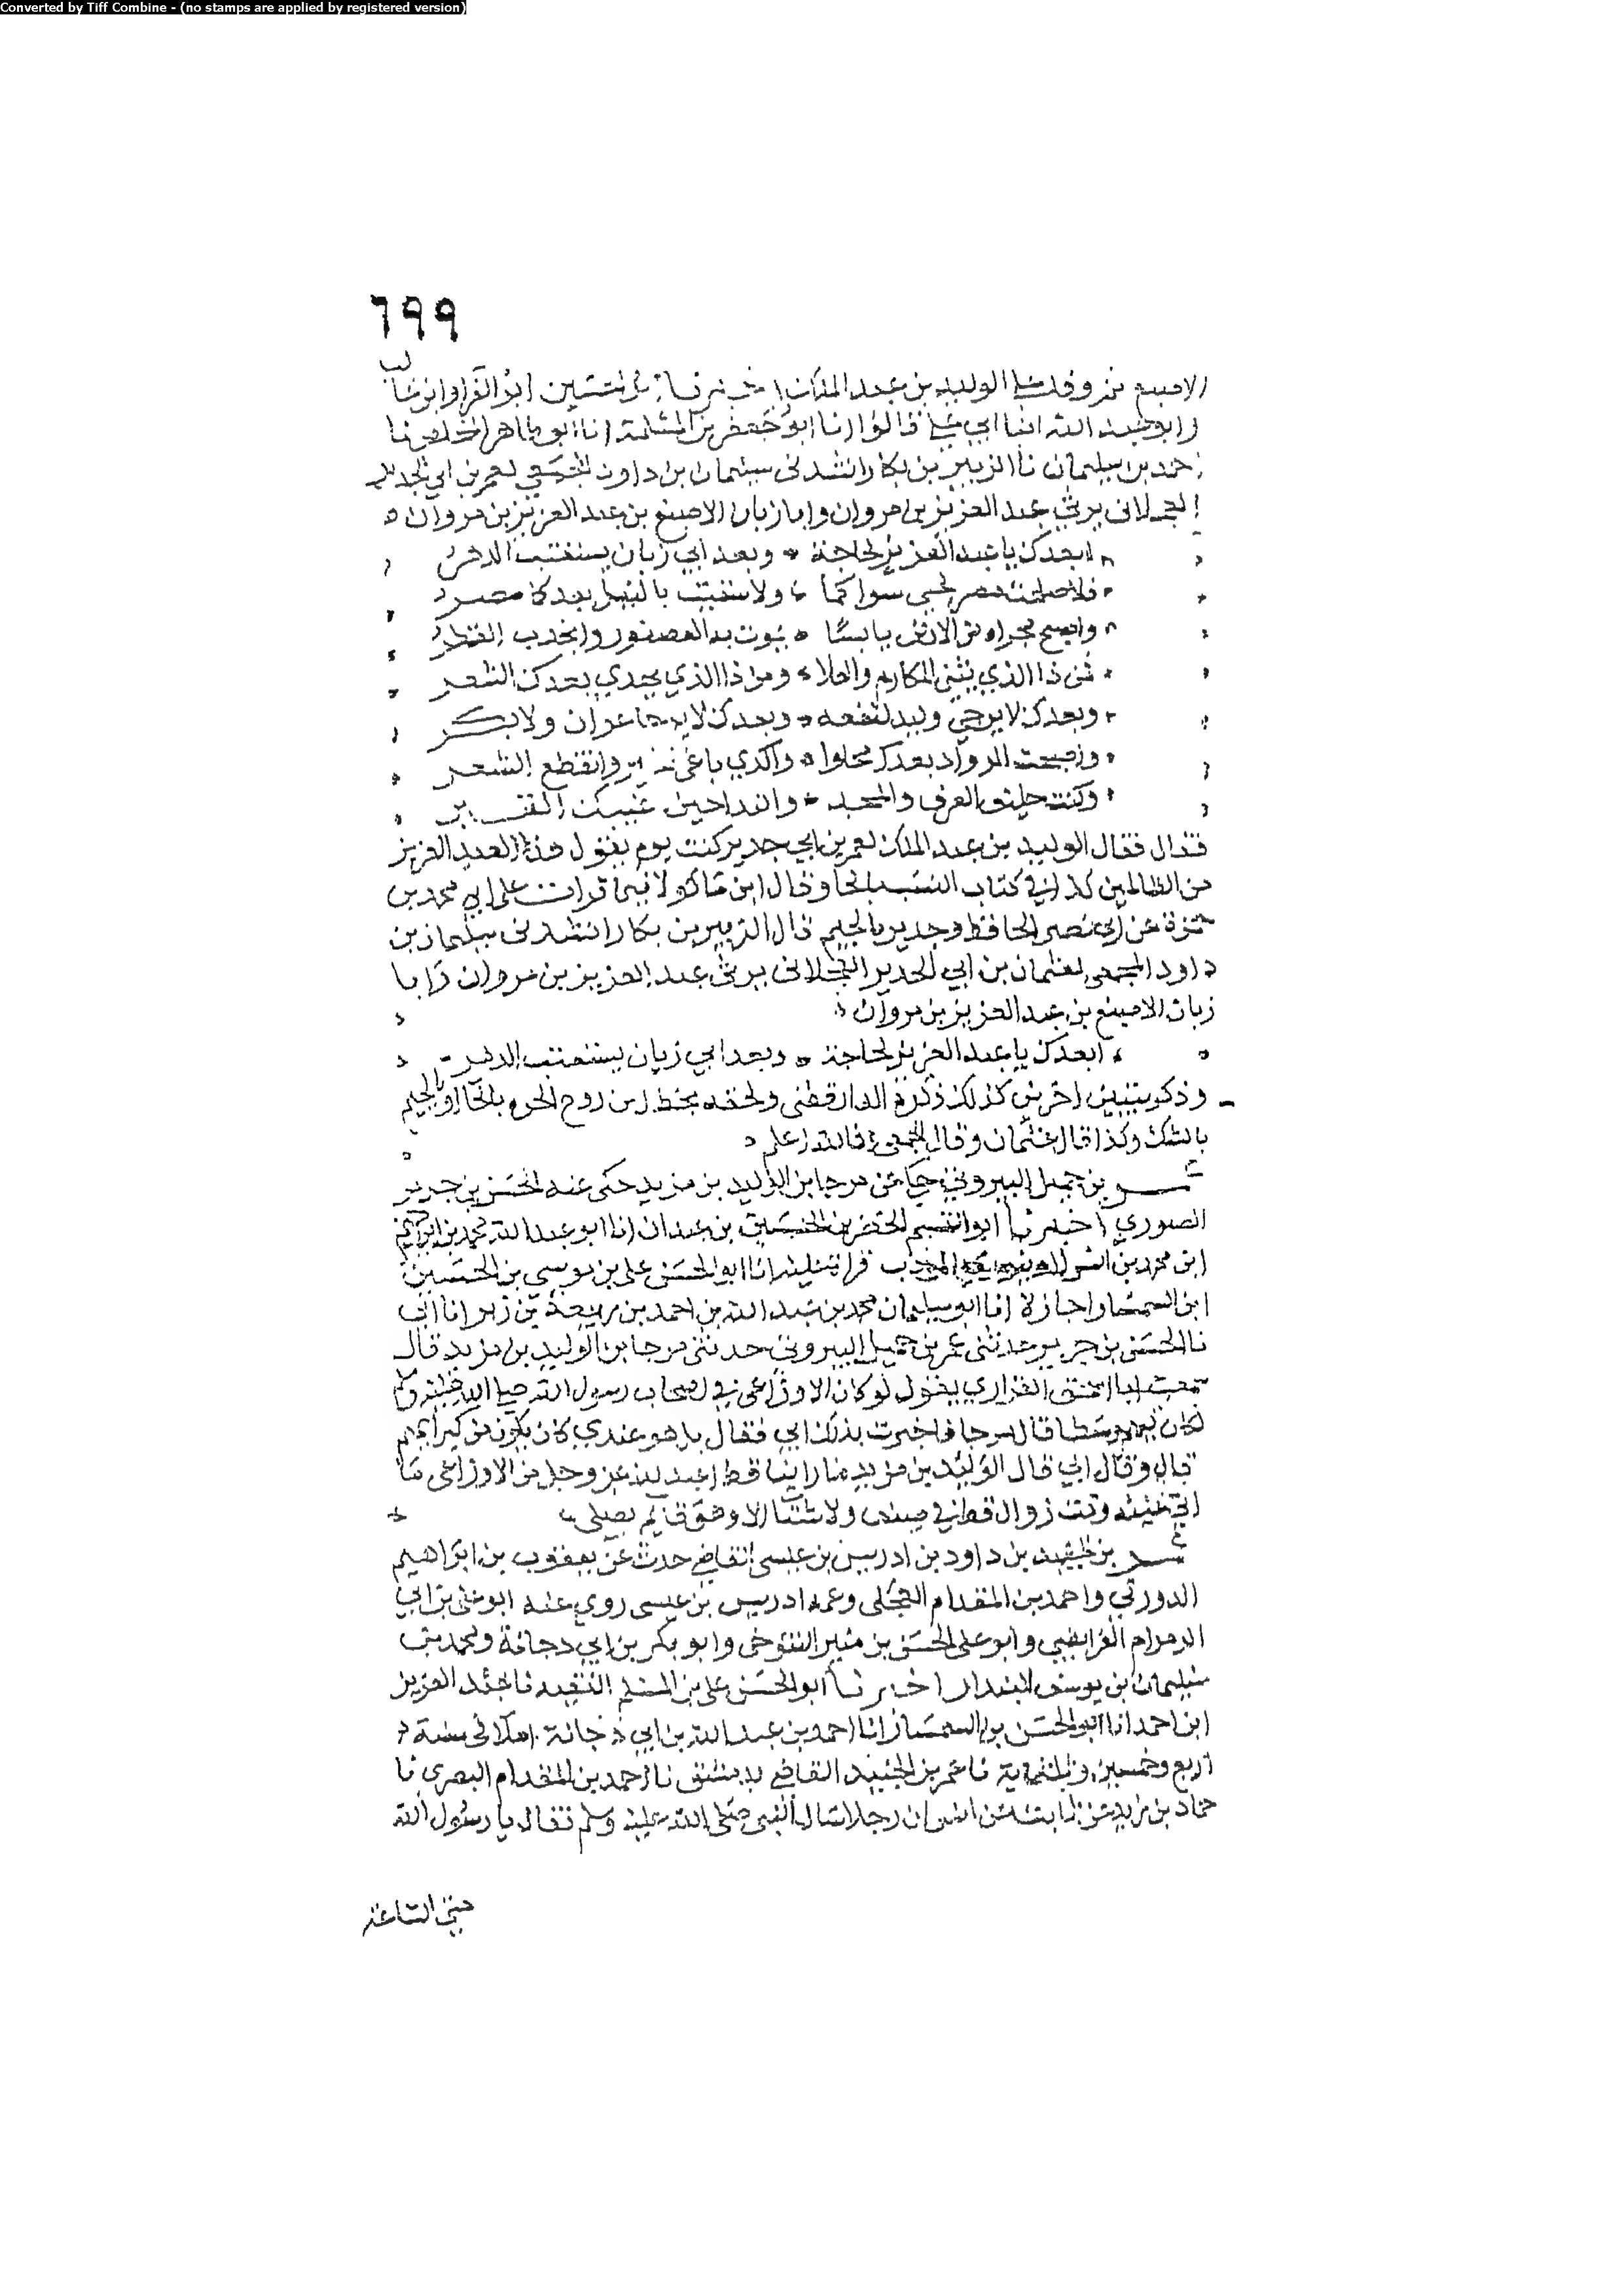 Converted by Tiff Combine - (no stamps are applied by registered version)
٦٩٩
الاصبغ ثم وفد على الوليد بن عبد الملك اخبرنا ابو الحسين ابن الفرا وابو غالب
وابو عبد الله ابنا ابي علي قالوا انا ابو جعفر بن المسلمة انا ابو طاهر المخلص نا
احمد بن سليمان نا الزبير بن بكار انشدني سليمان بن داود المجمعي لعمر بن ابي الجدير
العجلاني يرثي عبد العزيز بن مروان وابا زبان الاصبغ بن عبد العزيز بن مروان
ابعدك يا عبد العزيز لحاجة وبعد ابي زبان يستعتب الدهر
فلا صلحت مصر لحي سواكما ولا سقيت بالنيل بعدكما مصر
واصبح مجراه من الارض يابسا يموت به العصفور وانجدب القطر
فمن ذا الذي يبني المكارم والعلا ومن ذا الذي يهدي بعدك الشعر
وبعدك لا يرجى وليد لنفعه وبعدك لا عوان ولا بكر
واصبحت الرواد بعدك محلوا واكدي باغي وانقطع الشعر
وكنت حليف العرف والمجد والندا حين غيبك القبر
قال فقال الوليد بن عبد الملك لعمر بن ابي جدير كنت يوم تقول هذا لعبد العزيز
من الظالمين كذا في كتاب النسب بالحا وقال ابن ماكولا فيما قرات على ابي محمد بن
حمزة عن ابي نصر الحافظ وجدير بالجيم قال الزبير بن بكار انشدني سليمان بن
داود المجمعي لعثمان بن ابي الجدير العجلاني يرثي عبد العزيز بن مروان وابا
زبان الاصبغ بن عبد العزيز بن مروان
ابعدك يا عبد العزيز لحاجة وبعد ابي زبان يستعتب الدهر
وذكر بيتين اخرين كذلك ذكره الدارقطني ولحقه بخط ابن روح الحره بالحا او بالجيم
بالشك وكذا قال عثمان وقال المجمعي فالله اعلم
عمر بن جميل البيروتي حكا عن مرجا بن الوليد بن مزيد حكى عنه الحسن بن جرير
الصوري اخبرنا ابو القسم الخضر بن الحسين بن عبدان انا ابو عبد الله محمد بن ابراهيم
ابن محمد بن المودب قراة عليه انا ابو الحسن علي بن موسى بن الحسين
ابن السمسار اجازة انا ابو سليمان محمد بن عبد الله بن احمد بن ربيعة بن زبر انا ابي
نا الحسن بن جرير حدثني عمر بن جميل البيروتي حدثني مرجا بن الوليد بن مزيد قال
سمعت ابا اسحق الفزاري يقول لو كان الاوزاعي في اصحاب رسول الله صلى الله عليه وسلم
لكان فيهم وسطا قال مرجا فاخبرت بذلك ابي فقال بل هو عندي كان يكون من كبرائهم
قال وقال ابي قال الوليد بن مزيد ما راينا قط اعبد لله عز وجل من الاوزاعي ما
اتى عليه وقت زوال قط في صيف ولا شتا الا وهو قايم يصلي
عمر بن الجنيد بن داود بن ادريس بن عيسى القاضي حدث عن يعقوب بن ابراهيم
الدورقي واحمد بن المقدام العجلي وعمه ادريس بن عيسى روى عنه ابو علي بن ابي
الرمرام الفرايضي وابو علي الحسن بن منير التنوخي وابو بكر بن ابي دجانة ومحمد بن
سليمان بن يوسف البندار اخبرنا ابو الحسن علي بن المسلم الفقيه نا عبد العزيز
ابن احمد انا ابو الحسن بن السمسار انا احمد بن عبد الله بن ابي دجانة املا في سنة
اربع وخمسين وثلثماية نا عمر بن الجنيد القاضي بدمشق نا احمد بن المقدام البصري نا
حماد بن زيد عن ثابت عن انس ان رجلا سال النبي صلى الله عليه وسلم فقال يا رسول الله
متى الساعة